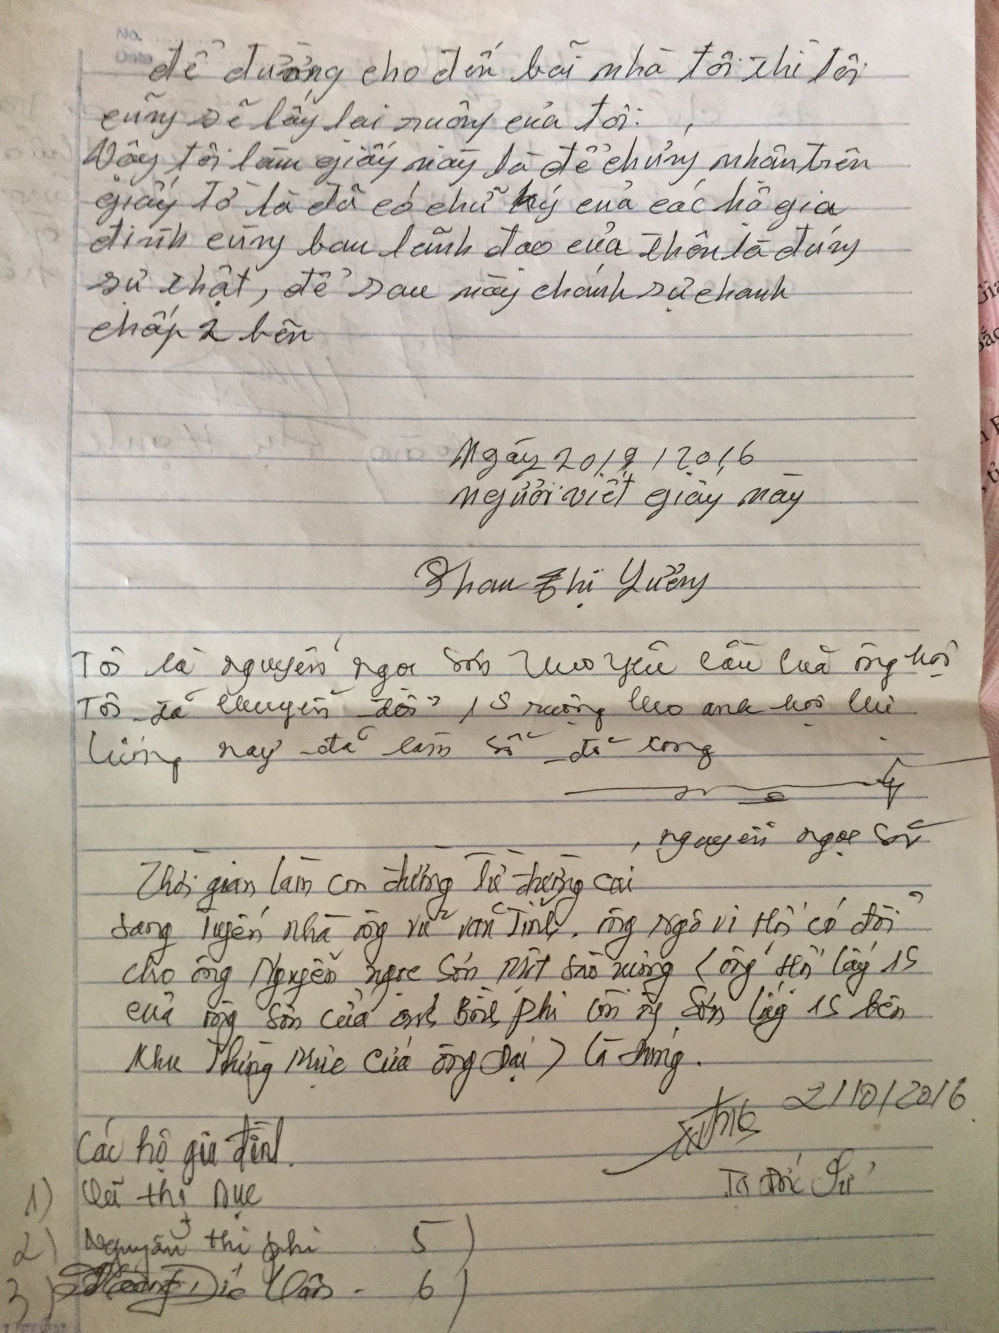 để đường cho đến bãi nhà tôi thì tôi
cũng sẽ lấy lại ruông của tôi.
Vậy tôi làm giấy này là để chứng nhân trên
giấy tờ là đã có chữ ký của các hô gia
đình cùng ban lãnh đao của thôn là đúng
sự thật, để sau này chánh sự chanh
chấp 2 bên
Ngày 20/9/2016
Người viết giấy này
Phan Thị Yưởng
Tôi là nguyễn ngọc Sơn theo yêu cầu của ông
Tôi đã chuyển đổi 1S ruộng cho anh
nay đã làm sổ đỏ xong
nguyễn ngọc Sơn
Thời gian làm con đường Từ đường cái
sang Tuyến nhà ông vũ văn Tĩnh. ông Ngô vi có đổi
cho ông Nguyễn ngọc Sơn Một Sào ruộng ( ông lấy 1S
của ông Sơn cửa Phi còn ông Sơn lấy 1S bên
khu của ông Đại ) là đúng.
2/10/2016
Các hộ gia đình.
1) thị Dục
2) Nguyễn thị phi 5)
3) 6)